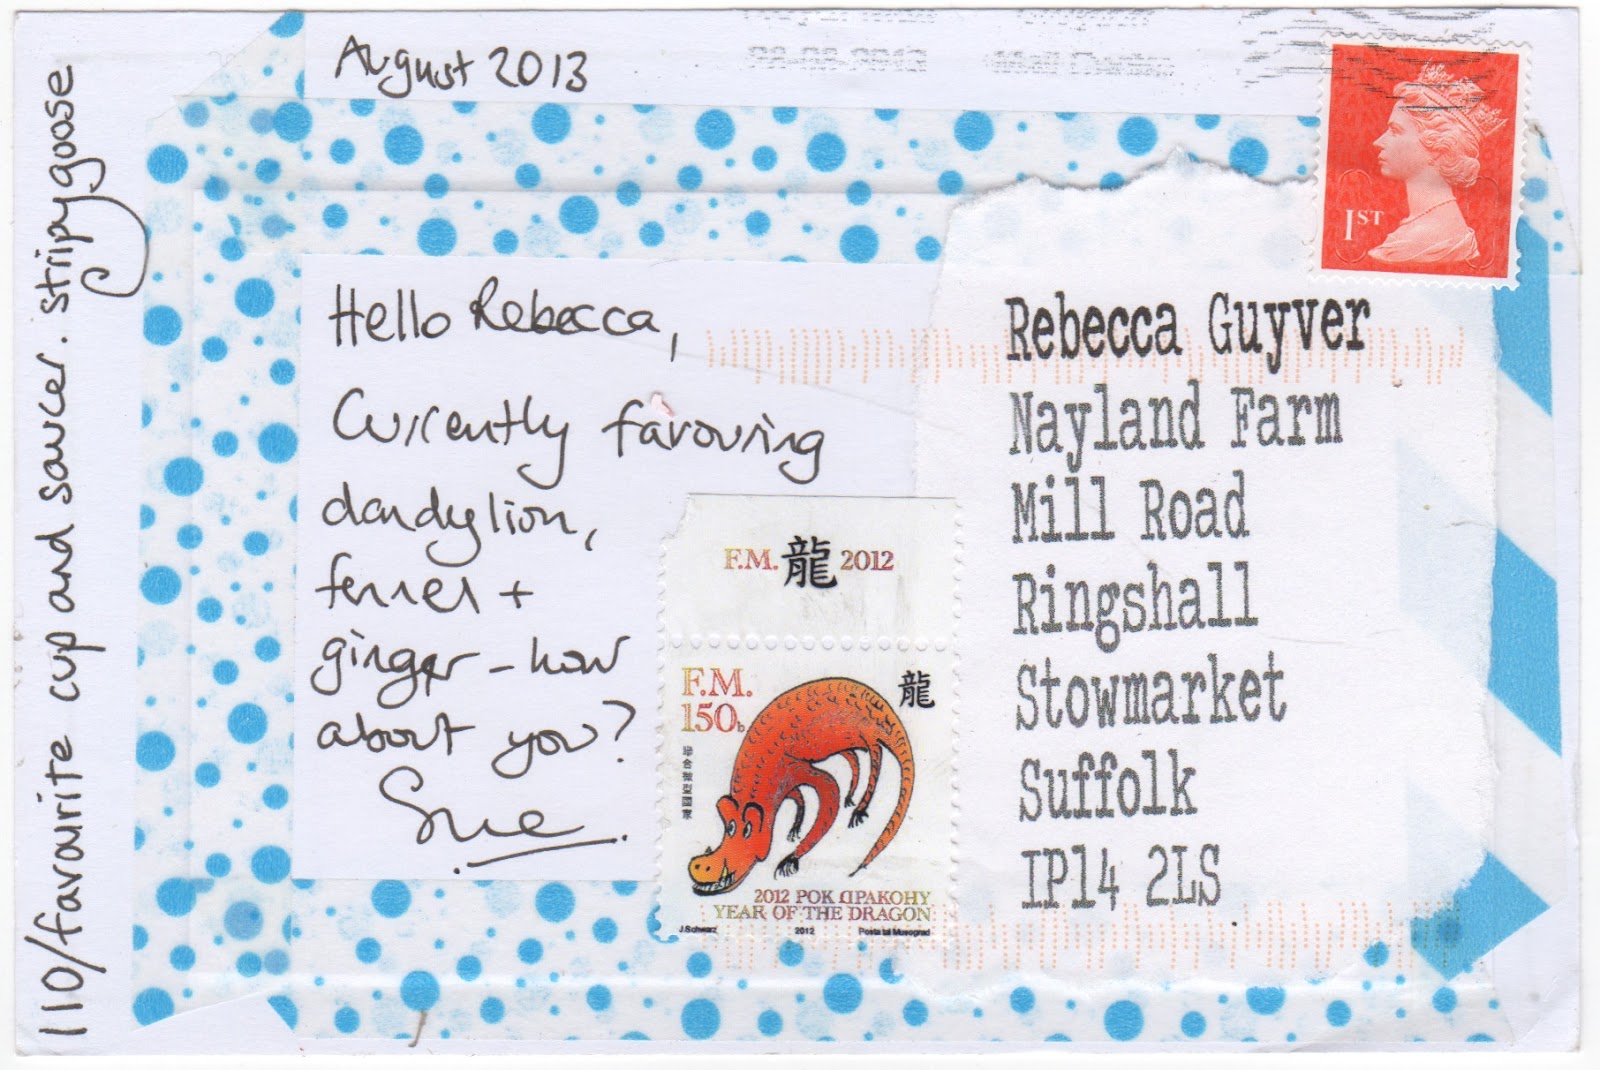 August 2013
1ST
110/favourite cup and saucer. stripygoose
Hello Rebecca,
Currently favouring
dandylion,
fennel +
ginger – how
about you?
Sue.
F.M. 龍 2012
F.M.
150b
龍
2012 РОК ДРАКОНУ
YEAR OF THE DRAGON
J.Schwarz 2012 Posta tal Musograd
Rebecca Guyver
Nayland Farm
Mill Road
Ringshall
Stowmarket
Suffolk
IP14 2LS